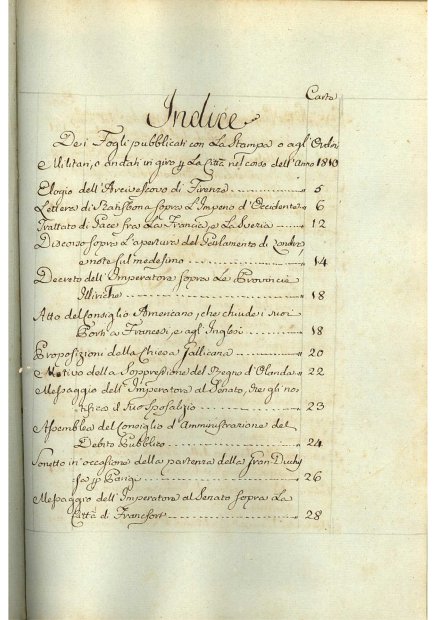 Carte
Indice
Dei Fogli pubblicati con la Stampa o agl'Ordini
Militari, o andati in giro p la Città nel corso dell'Anno 1810
Elogio dell'Arcivescovo di Firenze 5
Lettera di Ratisbona sopra l'Impero d'Occidente 6
Trattato di Pace fra la Francia, e la Svezia 12
Discorso sopra l'apertura del Parlamento di Londra,
e note sul medesimo 14
Decreto dell'Imperatore sopra le Provincie
Illiriche 18
Atto del Consiglio Americano, che chiude i suoi
Porti a Francesi, e agl'Inglesi 18
Proposizioni della Chiesa Gallicana 20
Motivo della Soppressione del Regno d'Olanda 22
Messaggio dell'Imperatore al Senato, che gli no=
tifica il suo sposalizio 23
Assemblea del Consiglio d'Amministrazione del
Debito Pubblico 24
Sonetto in occasione della partenza della Gran=Duch=
sa p Parigi 26
Messaggio dell'Imperatore al Senato sopra la
Città di Francfort 28